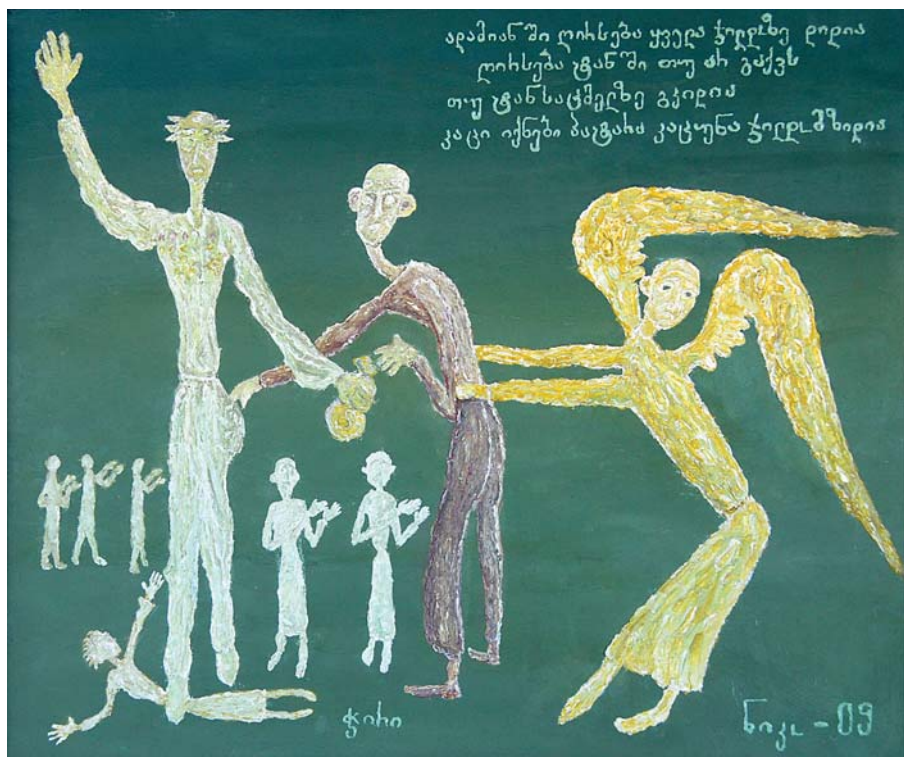 ადამიანში ღირსება ყველა ჯილდოზე დიდია
ღირსება ტანში თუ არ გაქვს
თუ ტანსაცმელზე გკიდია
კაცი იქნები პატარა კაცუნა ჯილდომზიდია
ჭირი
ნიკო - 09